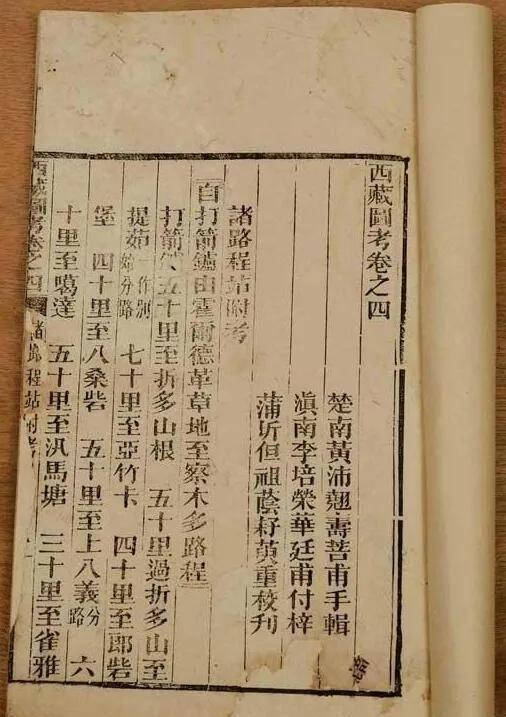 西藏圖考卷之四
楚南黃沛翹壽菩甫手輯
滇南李培榮華廷甫付梓
蒲圻但祖蔭耔莄重校刊
諸路程站附考
自打箭鑪由霍爾德革草地至察木多路程
打箭鑪五十里至折多山根　五十里過折多山至
提茹一作別始分路　七十里至亞竹卡　四十里至郎砦
堡　四十里至八桑砦　五十里至上八義分路　六
十里至噶達　五十里至汎馬塘　三十里至雀雅
西藏圖考卷之四　諸路程站附考